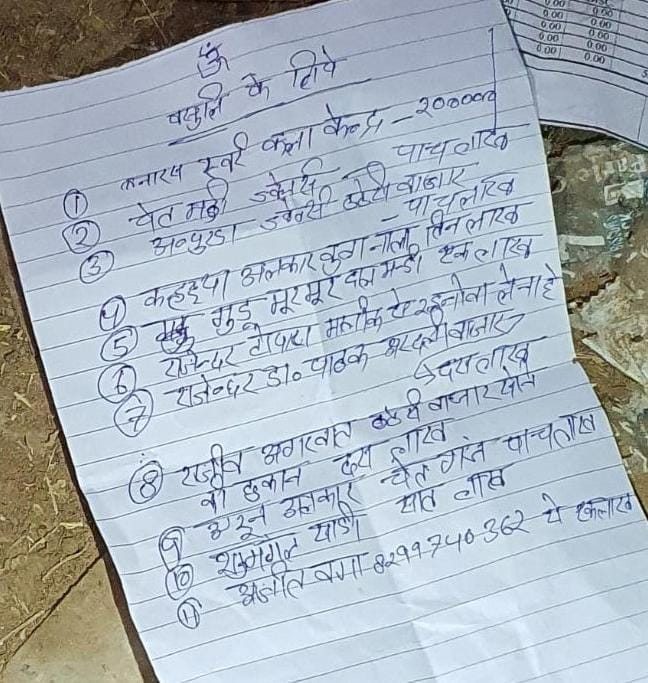 ॐ
वसुलि के लिये
① बनारस स्वर कला केन्द्र - 200000
② चेत मढी ज्वेलर्स - पाच लाख
③ अन्पुरडा ज्वेलर्स ठठेरी बाजार
- पाच लाख
④ कहइया अलंकार कुवा नाला तिन लाख
⑤ गुडू मूरमूर दाल मन्डी एक लाख
⑥ राजेन्दर मालीक से लेना हे
⑦ राजेन्दर डा० पाठक बाजार
दस लाख
⑧ राजीव अगरवाल ठठेरी बाजार सोने
की दुकान दस लाख
⑨ अरून अलंकार चेत गंज पाच लाख
⑩ शुभमंगल साडी सात लाख
⑪ अजीत वर्मा 8299740362 से एक लाख
0.00
0.00
0.00
0.00
0.00
0.00
0.00
0.00